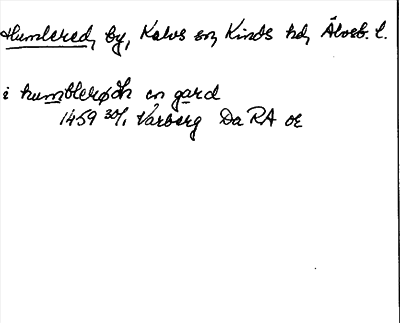 Humlered, by, Kalvs sn, Kinds hd, Älvsb. l.
i humblerødh en gard
1459 30/1 Varberg Da RA oc